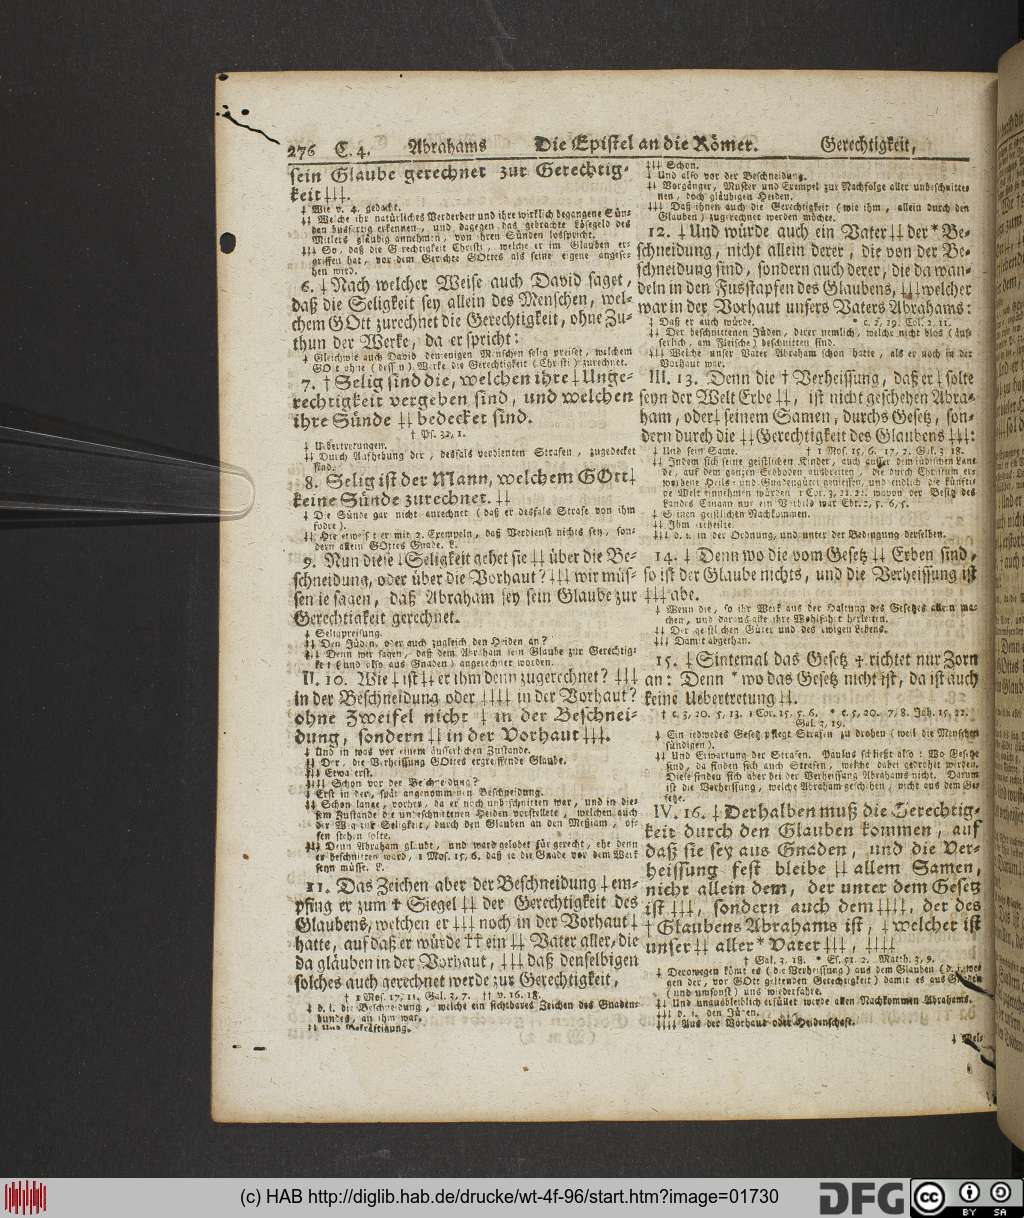 276 C. 4. Abrahams Die Epistel an die Römer. Gerechtigkeit,
sein Glaube gerechnet zur Gerechtig-
keit‡‡‡.
‡ Wie v. 4. gedacht.
‡‡ Welche ihr natürliches Verderben und ihre wirklich begangene Sün-
den bußfertig erkennen, und dagegen das gebrachte Lösegeld des
Mitlers gläubig annehmen, von ihren Sünden losspricht.
‡‡‡ So, daß die Gerechtigkeit Christi, welche er im Glauben er-
griffen hat, vor dem Gerichte GOttes als seine eigene angese-
hen wird.
6. ‡ Nach welcher Weise auch David saget,
daß die Seligkeit sey allein des Menschen, wel-
chem GOtt zurechnet die Gerechtigkeit, ohne Zu-
thun der Werke, da er spricht:
‡ Gleichwie auch David denjenigen Menschen selig preiset, welchem
GOtt ohne (dessen) Werke die Gerechtigkeit (Christi) zurechnet.
7. † Selig sind die, welchen ihre ‡ Unge-
rechtigkeit vergeben sind, und welchen
ihre Sünde ‡‡ bedecket sind.
† Ps. 32, 1.
‡ Uebertretungen.
‡‡ Durch Aufhebung der, desfals verdienten Strafen, zugedecket
sind.
8. Selig ist der Mann, welchem GOtt‡
keine Sünde zurechnet. ‡‡
‡ Die Sünde gar nicht anrechnet (daß er desfals Strafe von ihm
fodre).
‡‡ Hier erweiset er mit 2. Exempeln, daß Verdienst nichts sey, son-
dern allein GOttes Gnade. L.
9. Nun diese ‡ Seligkeit gehet sie ‡‡ über die Be-
schneidung, oder über die Vorhaut? ‡‡‡ wir müs-
sen je sagen, daß Abraham sey sein Glaube zur
Gerechtigkeit gerechnet.
‡ Seligpreisung.
‡‡ Den Jüden, oder auch zugleich den Heiden an?
‡‡‡ Denn wir sagen, daß dem Abraham sein Glaube zur Gerechtig-
keit (und also aus Gnaden) angerechnet worden.
II. 10. Wie ‡ ist ‡‡ er ihm denn zugerechnet? ‡‡‡
in der Beschneidung oder ‡‡‡‡ in der Vorhaut?
ohne Zweifel nicht ‡ in der Beschnei-
dung, sondern ‡‡ in der Vorhaut ‡‡‡.
‡ Und in was vor einem äusserlichen Zustande.
‡‡ Der, die Verheissung GOttes ergreiffende Glaube.
‡‡‡ Etwa erst.
‡‡‡‡ Schon vor der Beschneidung?
‡ Erst in der, spät angenommenen Beschneidung.
‡‡ Schon lange, vorher, da er noch unbeschnitten war, und in die-
sem Zustande die unbeschnittenen Heiden vorstellete, welchen auch
der Weg zur Seligkeit, durch den Glauben an den Meßiam, of-
fen stehen solte.
‡‡‡ Denn Abraham gläubt, und ward gelobet für gerecht, ehe denn
er beschnitten ward, 1 Mos. 15, 6. daß je die Gnade vor dem Werk
seyn müsse. L.
11. Das Zeichen aber der Beschneidung ‡ em-
pfing er zum † Siegel ‡‡ der Gerechtigkeit des
Glaubens, welchen er ‡‡‡ noch in der Vorhaut ‡
hatte, auf daß er würde †† ein ‡‡ Vater aller, die
da gläuben in der Vorhaut, ‡‡‡ daß denselbigen
solches auch gerechnet werde zur Gerechtigkeit,
† 1 Mos. 17, 11. Gal. 3, 7. †† v. 16. 18.
‡ d. i. die Beschneidung, welche ein sichtbares Zeichen des Gnaden-
bundes, an ihm war.
‡‡ Und Bekräftigung.
‡‡‡ Schon.
‡ Und also vor der Beschneidung.
‡‡ Vorgänger, Muster und Exempel zur Nachfolge aller unbeschnitte-
nen, doch gläubigen Heiden.
‡‡‡ Daß ihnen auch die Gerechtigkeit (wie ihm, allein durch den
Glauben) zugerechnet werden möchte.
12. ‡ Und würde auch ein Vater ‡‡ der * Be-
schneidung, nicht allein derer, die von der Be-
schneidung sind, sondern auch derer, die da wan-
deln in den Fusstapfen des Glaubens, ‡‡‡ welcher
war in der Vorhaut unsers Vaters Abrahams:
‡ Daß er auch würde. * c. 2, 29. Col. 2, 11.
‡‡ Der beschnittenen Jüden, derer nemlich, welche nicht blos (äus-
serlich, am Fleische) beschnitten sind.
‡‡‡ Welche unser Vater Abraham schon hatte, als er noch in der
Vorhaut war.
III. 13. Denn die † Verheissung, daß er ‡ solte
seyn der Welt Erbe ‡‡, ist nicht geschehen Abra-
ham, oder ‡ seinem Samen, durchs Gesetz, son-
dern durch die ‡‡ Gerechtigkeit des Glaubens ‡‡‡:
‡ Und sein Same. † 1 Mos. 15, 6. 17, 2. Gal. 3, 18.
‡‡ Indem sich seine geistlichen Kinder, auch ausser dem jüdischen Lan-
de, auf dem ganzen Erdboden ausbreiten, die durch Christum er-
worbene Heils- und Gnadengüter geniessen, und endlich die künfti-
ge Welt einnehmen würden 1 Cor. 3, 21. 22. wovon der Besitz des
Landes Canaan nur ein Vorbild war Ebr. 2, 5. 6, 5.
‡ Seinen geistlichen Nachkommen.
‡‡ Ihm ertheilte.
‡‡‡ d. i. in der Ordnung, und unter der Bedingung derselben.
14. ‡ Denn wo die vom Gesetz ‡‡ Erben sind,
so ist der Glaube nichts, und die Verheissung ist
‡‡‡ abe.
‡ Wenn die, so ihr Werk aus der Haltung des Gesetzes allein ma-
chen, und daraus alle ihr Wohlfahrt herleiten.
‡‡ Der geistlichen Güter und des ewigen Lebens.
‡‡‡ Damit abgethan.
15. ‡ Sintemal das Gesetz † richtet nur Zorn
an: Denn * wo das Gesetz nicht ist, da ist auch
keine Uebertretung ‡‡.
† c. 3, 20. 5, 13. 1 Cor. 15, 56. * c. 5, 20. 7, 8. Joh. 15, 22.
Gal. 3, 19.
‡ Ein jedwedes Gesetz pflegt Strafen zu drohen (weil die Menschen
sündigen).
‡‡ Und Erwartung der Strafen. Paulus schließt also: Wo Gesetze
sind, da finden sich auch Strafen, welche dabei gedrohet werden.
Diese finden sich aber bei der Verheissung Abrahams nicht. Darum
ist die Verheissung, welche Abraham geschehen, nicht aus dem Ge-
setze.
IV. 16. ‡ Derhalben muß die Gerechtig-
keit durch den Glauben kommen, auf
daß sie sey aus Gnaden, und die Ver-
heissung fest bleibe ‡‡ allem Samen,
nicht allein dem, der unter dem Gesetz
ist ‡‡‡, sondern auch dem ‡‡‡‡, der des
† Glaubens Abrahams ist, ‡ welcher ist
unser ‡‡ aller * Vater ‡‡‡, ‡‡‡‡
† Gal. 3, 18. * Es. 51, 2. Matth. 3, 9.
‡ Derowegen kömt es (die Verheissung) aus dem Glauben (d. i. wegen
gen der, vor GOtt geltenden Gerechtigkeit) damit es aus Gnaden
(und umsonst) uns wiederfahre.
‡‡ Und unausbleiblich erfüllet werde allen Nachkommen Abrahams.
‡‡‡ d. i. den Jüden.
‡‡‡‡ Aus der Vorhaut oder Heidenschaft.
‡ Wel-
(c) HAB http://diglib.hab.de/drucke/wt-4f-96/start.htm?image=01730
DFG
cc
BY SA